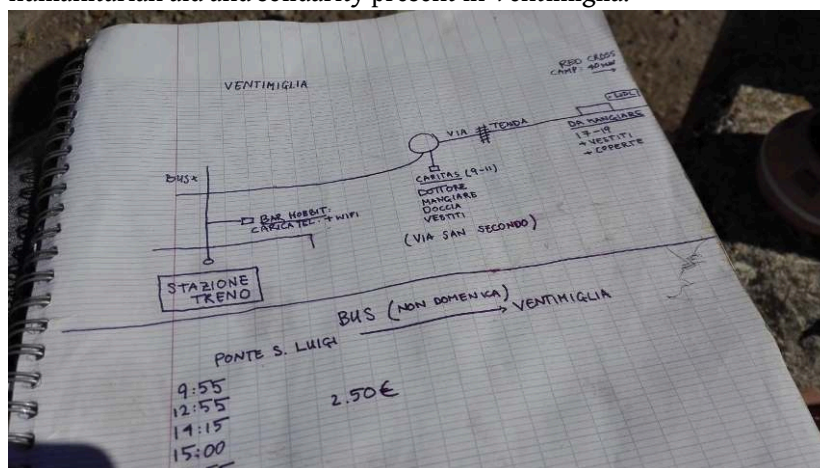 humanitarian aid and solidarity present in Ventimiglia.
VENTIMIGLIA
RED CROSS
CAMP: 40 MIN
LIDL
VIA TENDA
DA MANGIARE
17-19
+ VESTITI
+ COPERTE
BUS
CARITAS (9-11)
DOTTORE
MANGIARE
DOCCIA
VESTITI
(VIA SAN SECONDO)
BAR HOBBIT:
CARICA TEL. + WIFI
STAZIONE
TRENO
BUS (NON DOMENICA)
PONTE S. LUIGI → VENTIMIGLIA
9:55
12:55
14:15
15:00
2.50€